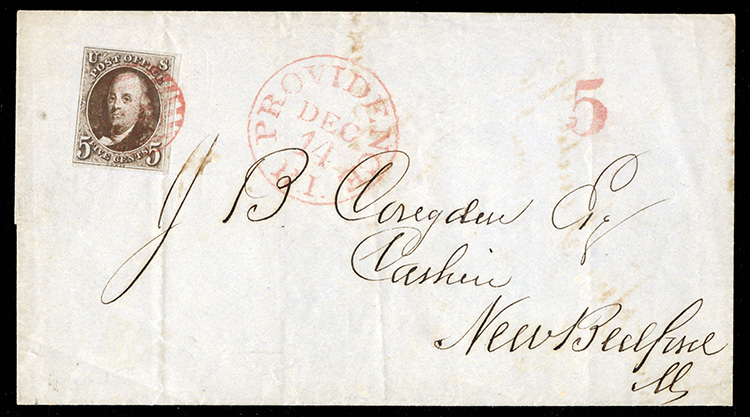 U S
POST OFFICE
5 FIVE CENTS 5
PROVIDENCE
DEC
14
R.I.
5
J B Congdon Esq
Cashier
New Bedford
Ms